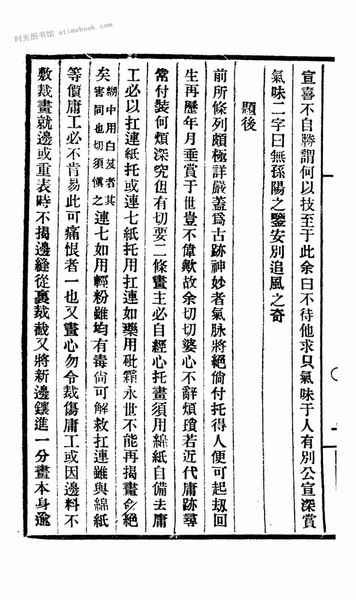 时光图书馆 atimebook.com
宣喜不自勝謂何以技至于此余曰不待他求只氣味于人有別公宣深賞
氣味二字曰無孫陽之鑒安別追風之奇
題後
前所條列頗極詳嚴蓋爲古跡神妙者氣脉將絕倘付托得人便可起掇回
生再歷年月垂賞于世豈不偉歟故余切切婆心不辭煩瑣若近代庸跡尋
常付裝何煩深究但有切要二條畫主必自經心托畫須用綿紙自備去庸
工必以扛連紙托或連七紙托用扛連如藥用砒霜永世不能再揭畫命絕
矣糊中用白芨者其害同也切須愼之連七如用輕粉雖均有毒尙可解救扛連雖與綿紙
等價庸工必不肯易此可痛恨者一也又畫心勿令裁傷庸工或因邊料不
敷裁畫就邊或重表時不揭邊縫從裏裁截又將新邊鑲進一分畫本身逾